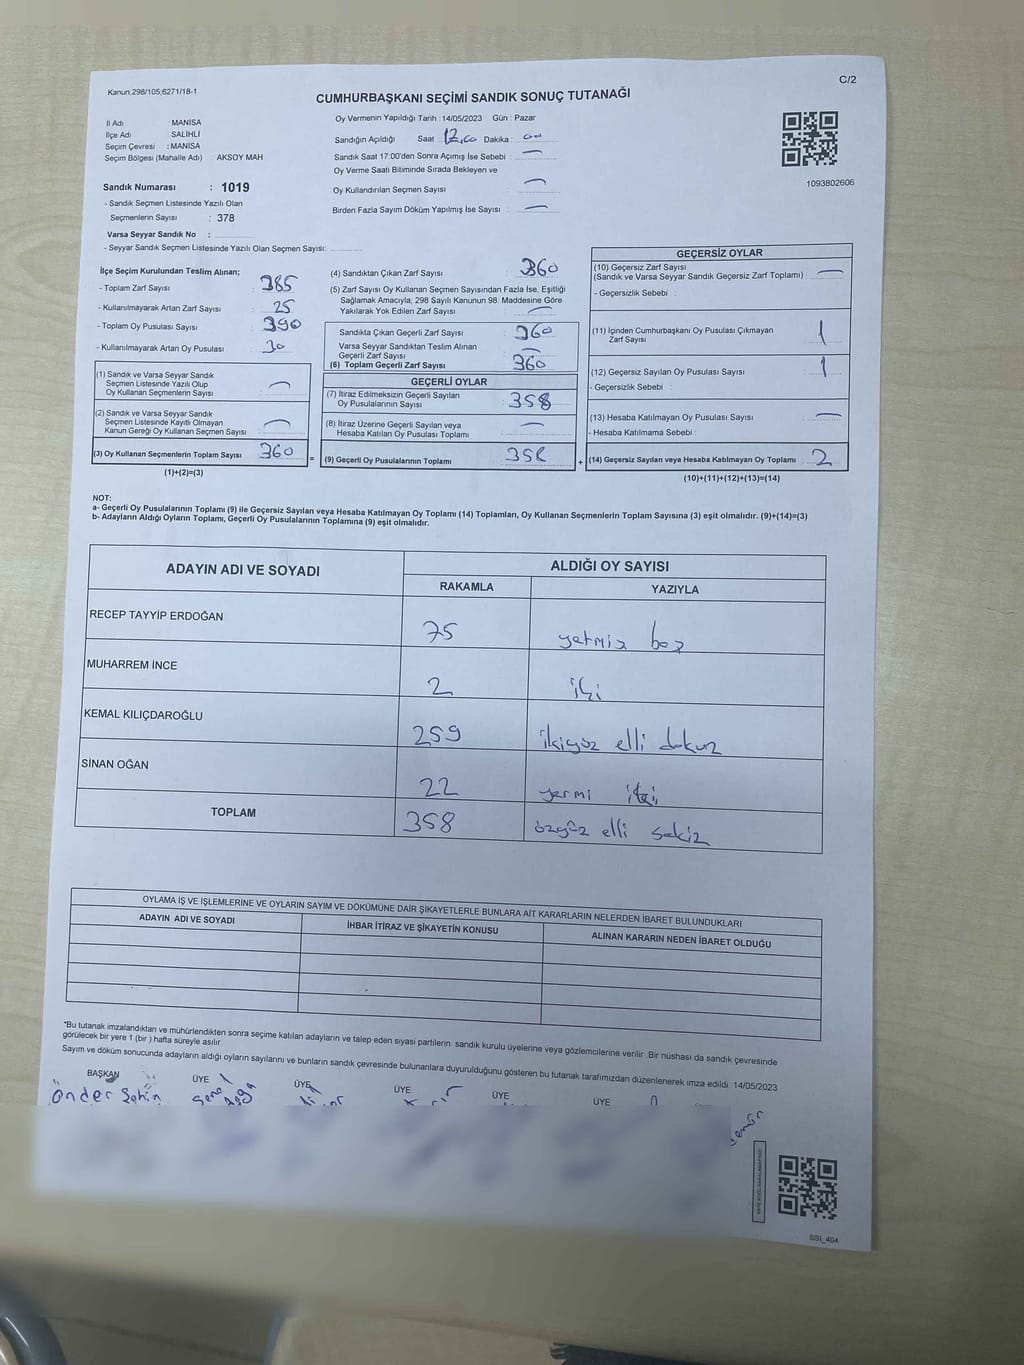 Kanun:298/105,6271/18-1
C/2
CUMHURBAŞKANI SEÇİMİ SANDIK SONUÇ TUTANAĞI
İl Adı : MANİSA
İlçe Adı : SALİHLİ
Seçim Çevresi : MANİSA
Seçim Bölgesi (Mahalle Adı) : AKSOY MAH
Sandık Numarası : 1019
- Sandık Seçmen Listesinde Yazılı Olan
Seçmenlerin Sayısı : 378
Varsa Seyyar Sandık No :
- Seyyar Sandık Seçmen Listesinde Yazılı Olan Seçmen Sayısı:
Oy Vermenin Yapıldığı Tarih : 14/05/2023 Gün : Pazar
Sandığın Açıldığı Saat : Dakika :
Sandık Saat 17:00'den Sonra Açımış İse Sebebi :
Oy Verme Saati Bitiminde Sırada Bekleyen ve
Oy Kullandırılan Seçmen Sayısı :
Birden Fazla Sayım Döküm Yapılmış İse Sayısı :
1093802606
İlçe Seçim Kurulundan Teslim Alınan;
- Toplam Zarf Sayısı : 385
- Kullanılmayarak Artan Zarf Sayısı : 25
- Toplam Oy Pusulası Sayısı : 390
- Kullanılmayarak Artan Oy Pusulası : 30
(1) Sandık ve Varsa Seyyar Sandık
Seçmen Listesinde Yazılı Olup
Oy Kullanan Seçmenlerin Sayısı :
(2) Sandık ve Varsa Seyyar Sandık
Seçmen Listesinde Kayıtlı Olmayan
Kanun Gereği Oy Kullanan Seçmen Sayısı :
(3) Oy Kullanan Seçmenlerin Toplam Sayısı : 360 =
(1)+(2)=(3)
(4) Sandıktan Çıkan Zarf Sayısı : 360
(5) Zarf Sayısı Oy Kullanan Seçmen Sayısından Fazla İse, Eşitliği
Sağlamak Amacıyla, 298 Sayılı Kanunun 98. Maddesine Göre
Yakılarak Yok Edilen Zarf Sayısı :
Sandıkta Çıkan Geçerli Zarf Sayısı : 360
Varsa Seyyar Sandıktan Teslim Alınan
Geçerli Zarf Sayısı :
(6) Toplam Geçerli Zarf Sayısı : 360
GEÇERLİ OYLAR
(7) İtiraz Edilmeksizin Geçerli Sayılan
Oy Pusulalarının Sayısı : 358
(8) İtiraz Üzerine Geçerli Sayılan veya
Hesaba Katılan Oy Pusulası Toplamı :
(9) Geçerli Oy Pusulalarının Toplamı : 358 +
GEÇERSİZ OYLAR
(10) Geçersiz Zarf Sayısı
(Sandık ve Varsa Seyyar Sandık Geçersiz Zarf Toplamı) :
- Geçersizlik Sebebi :
(11) İçinden Cumhurbaşkanı Oy Pusulası Çıkmayan
Zarf Sayısı : 1
(12) Geçersiz Sayılan Oy Pusulası Sayısı : 1
- Geçersizlik Sebebi :
(13) Hesaba Katılmayan Oy Pusulası Sayısı :
- Hesaba Katılmama Sebebi :
(14) Geçersiz Sayılan veya Hesaba Katılmayan Oy Toplamı : 2
(10)+(11)+(12)+(13)=(14)
NOT:
a- Geçerli Oy Pusulalarının Toplamı (9) ile Geçersiz Sayılan veya Hesaba Katılmayan Oy Toplamı (14) Toplamları, Oy Kullanan Seçmenlerin Toplam Sayısına (3) eşit olmalıdır. (9)+(14)=(3)
b- Adayların Aldığı Oyların Toplamı, Geçerli Oy Pusulalarının Toplamına (9) eşit olmalıdır.
ADAYIN ADI VE SOYADI
ALDIĞI OY SAYISI
RAKAMLA YAZIYLA
RECEP TAYYİP ERDOĞAN 75 yetmiş beş
MUHARREM İNCE 2 iki
KEMAL KILIÇDAROĞLU 259 ikiyüz elli dokuz
SİNAN OĞAN 22 yermi iki
TOPLAM 358 üzgüz elli sekiz
OYLAMA İŞ VE İŞLEMLERİNE VE OYLARIN SAYIM VE DÖKÜMÜNE DAİR ŞİKAYETLERLE BUNLARA AİT KARARLARIN NELERDEN İBARET BULUNDUKLARI
ADAYIN ADI VE SOYADI İHBAR İTİRAZ VE ŞİKAYETİN KONUSU ALINAN KARARIN NEDEN İBARET OLDUĞU
*Bu tutanak imzalandıktan ve mühürlendikten sonra seçime katılan adayların ve talep eden siyasi partilerin sandık kurulu üyelerine veya gözlemcilerine verilir. Bir nüshası da sandık çevresinde
görülecek bir yere 1 (bir ) hafta süreyle asılır.
Sayım ve döküm sonucunda adayların aldığı oyların sayılarını ve bunların sandık çevresinde bulunanlara duyurulduğunu gösteren bu tutanak tarafımızdan düzenlenerek imza edildi. 14/05/2023
BAŞKAN ÜYE ÜYE ÜYE ÜYE ÜYE
Önder Şahin
SSİ_404